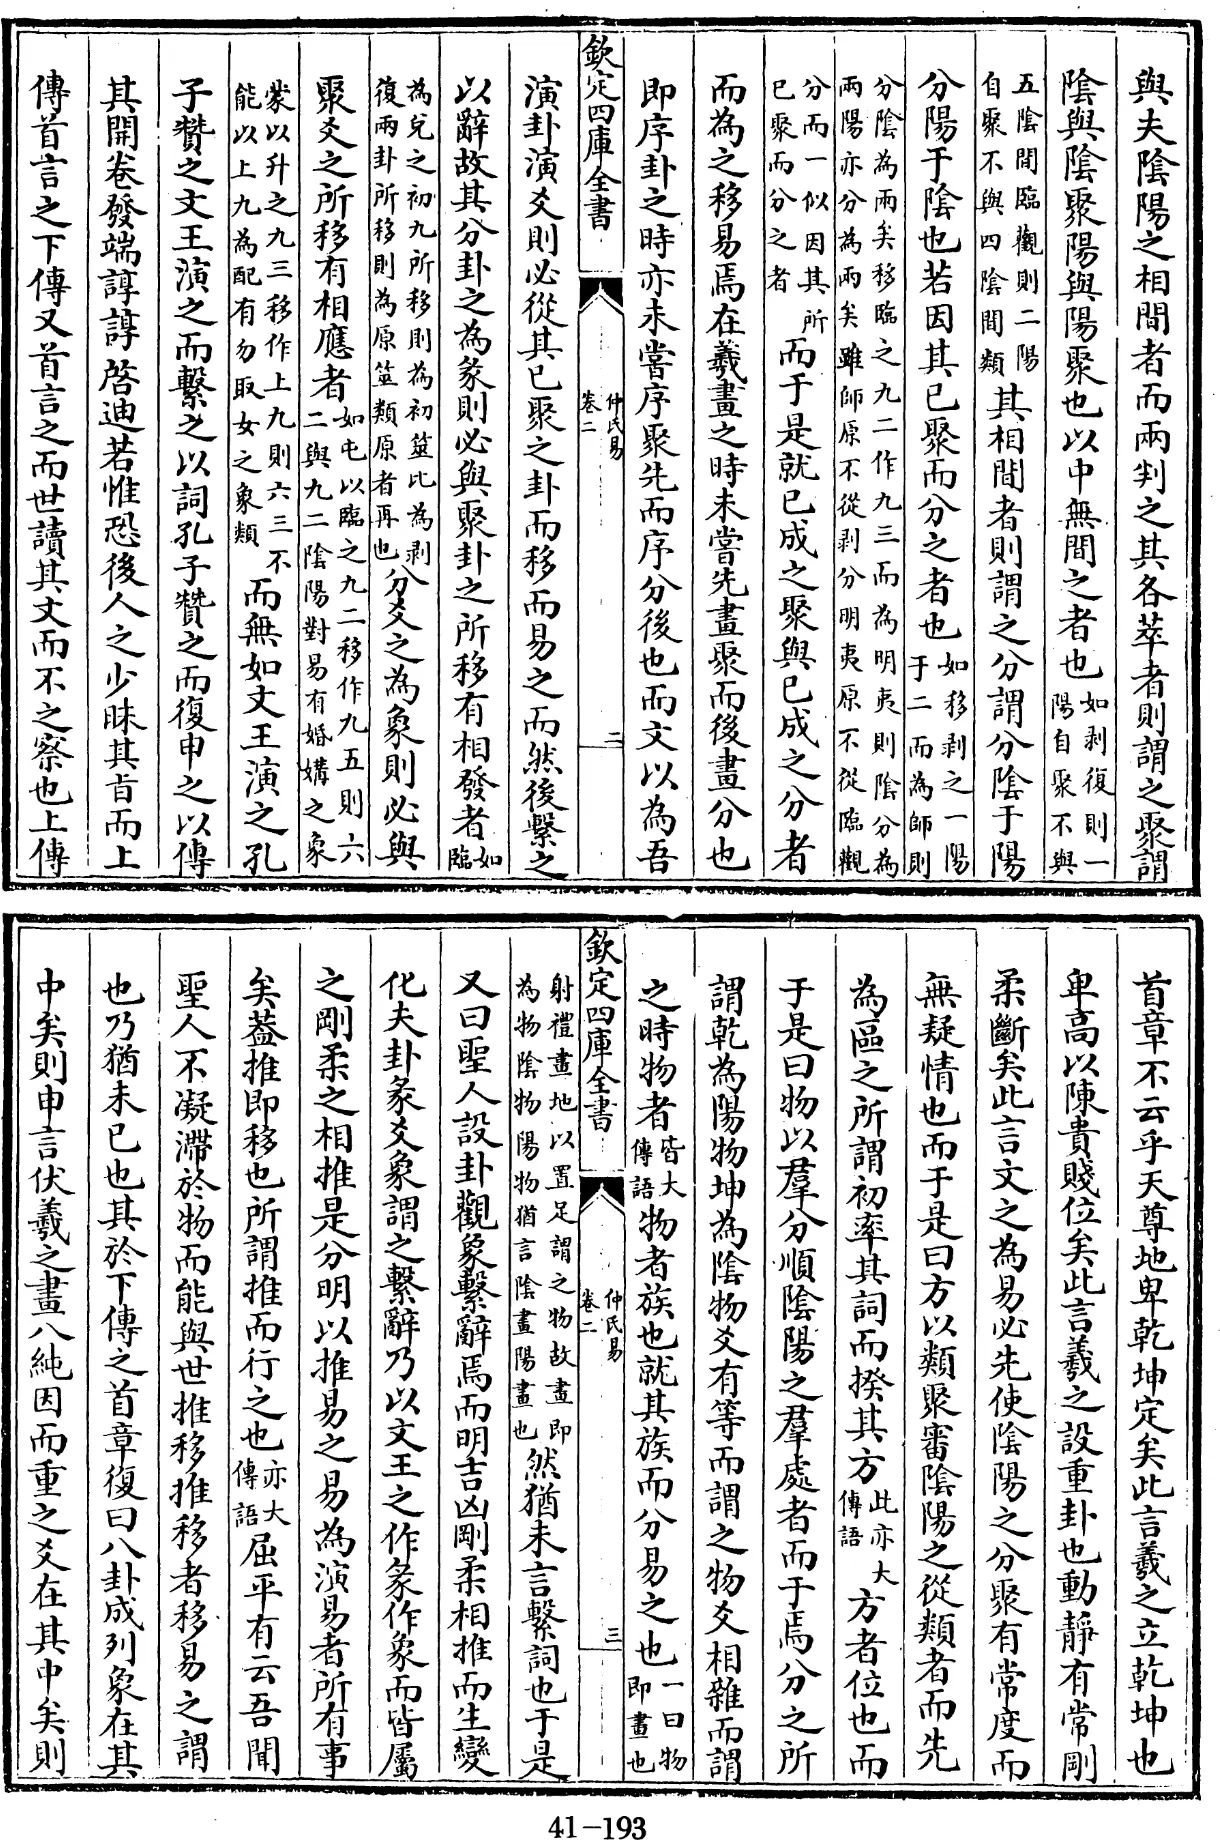 與夫陰陽之相間者而兩判之其各萃者則謂之聚謂
陰與陰聚陽與陽聚也以中無間之者也如剥復則一陽自聚不與
五陰間臨觀則二陽自聚不與四陰間類其相間者則謂之分謂分陰于陽
分陽于陰也若因其已聚而分之者也如移剥之一陽于二而為師則
分陰為兩矣移臨之九二作九三而為明夷則陰分為兩陽亦分為兩矣雖師原不從剥分明夷原不從臨觀
分而一似因其所已聚而分之者而于是就已成之聚與已成之分者
而為之移易焉在羲畫之時未嘗先畫聚而後畫分也
即序卦之時亦未嘗序聚先而序分後也而文以為吾
欽定四庫全書
仲氏易
卷二
二
演卦演爻則必從其已聚之卦而移而易之而然後繫之
以辭故其分卦之為彖則必與聚卦之所移有相發者如臨
為兌之初九所移則為初筮比為剥復兩卦所移則為原筮類原者再也分爻之為象則必與
聚爻之所移有相應者如屯以臨之九二移作九五則六二與九二陰陽對易有婚媾之象
蒙以升之九三移作上九則六三不能以上九為配有勿取女之象類而無如文王演之孔
子贊之文王演之而繫之以詞孔子贊之而復申之以傳
其開卷發端諄諄啓迪若惟恐後人之少昧其旨而上
傳首言之下傳又首言之而世讀其文而不之察也上傳
首章不云乎天尊地卑乾坤定矣此言羲之立乾坤也
卑高以陳貴賤位矣此言羲之設重卦也動靜有常剛
柔斷矣此言文之為易必先使陰陽之分聚有常度而
無疑情也而于是曰方以類聚審陰陽之從類者而先
為區之所謂初率其詞而揆其方此亦大傳語方者位也而
于是曰物以羣分順陰陽之羣處者而于焉分之所
謂乾為陽物坤為陰物爻有等而謂之物爻相雜而謂
之時物者皆大傳語物者族也就其族而分易之也一曰物即畫也
欽定四庫全書
仲氏易
卷二
三
射禮畫地以置足謂之物故畫即為物陰物陽物猶言陰畫陽畫也然猶未言繫詞也于是
又曰聖人設卦觀象繫辭焉而明吉凶剛柔相推而生變
化夫卦彖爻象謂之繫辭乃以文王之作彖作象而皆屬
之剛柔之相推是分明以推易之易為演易者所有事
矣葢推即移也所謂推而行之也亦大傳語屈平有云吾聞
聖人不凝滯於物而能與世推移推移者移易之謂
也乃猶未已也其於下傳之首章復曰八卦成列象在其
中矣則申言伏羲之畫八純因而重之爻在其中矣則
41-193